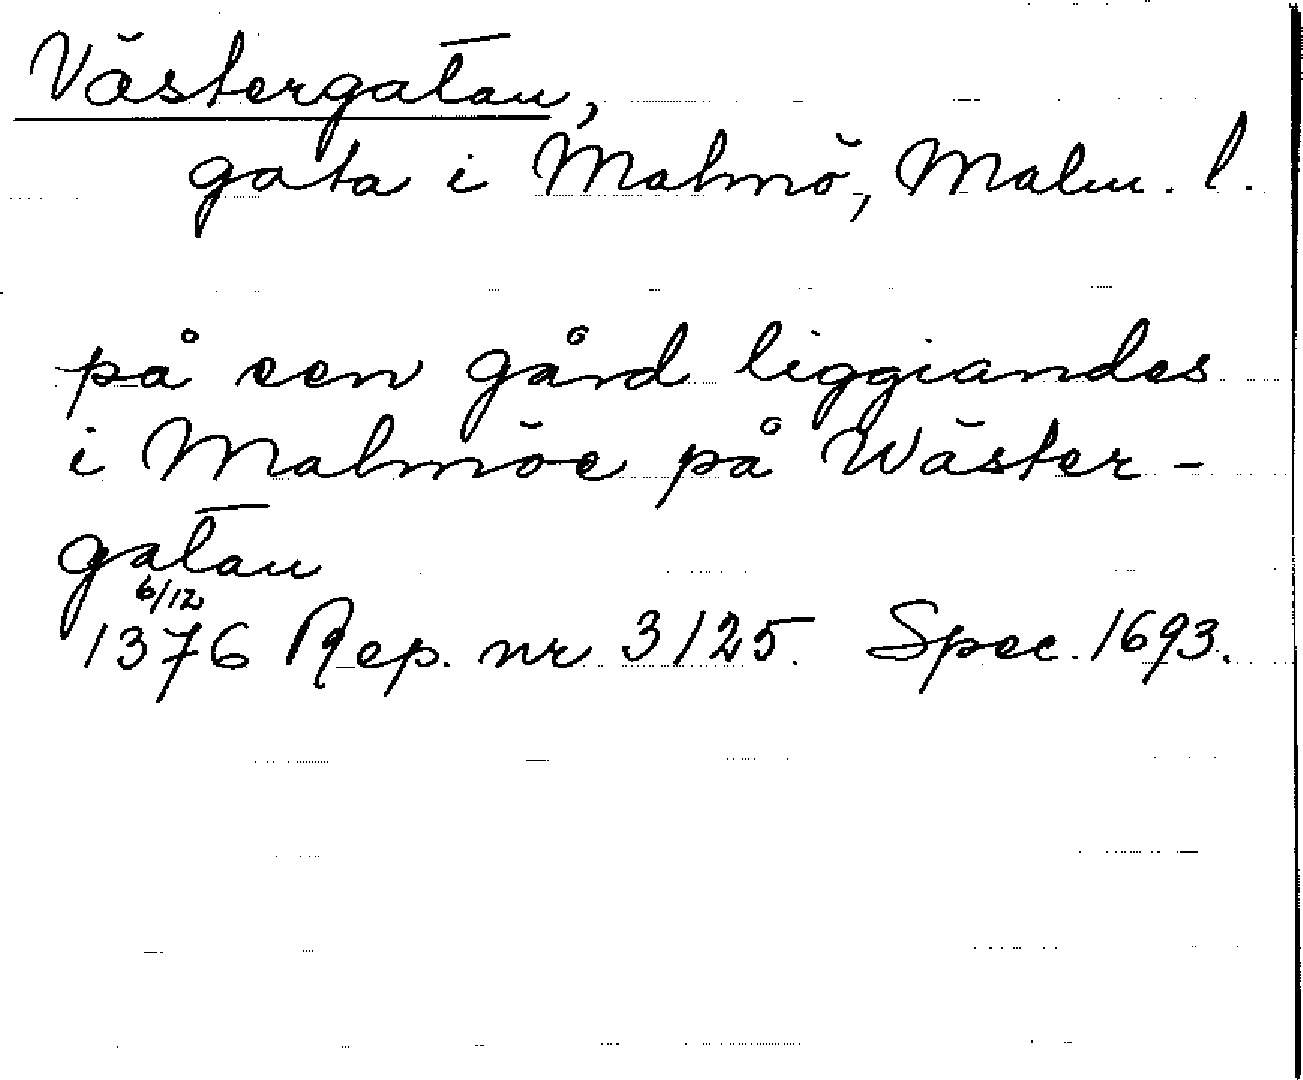 Västergatan,
gata i Malmö, Malm. l.
på een gård liggiandes
i Malmöe på Wäster-
gatan
6/12
1376 Rep. nr 3125. Spec. 1693.